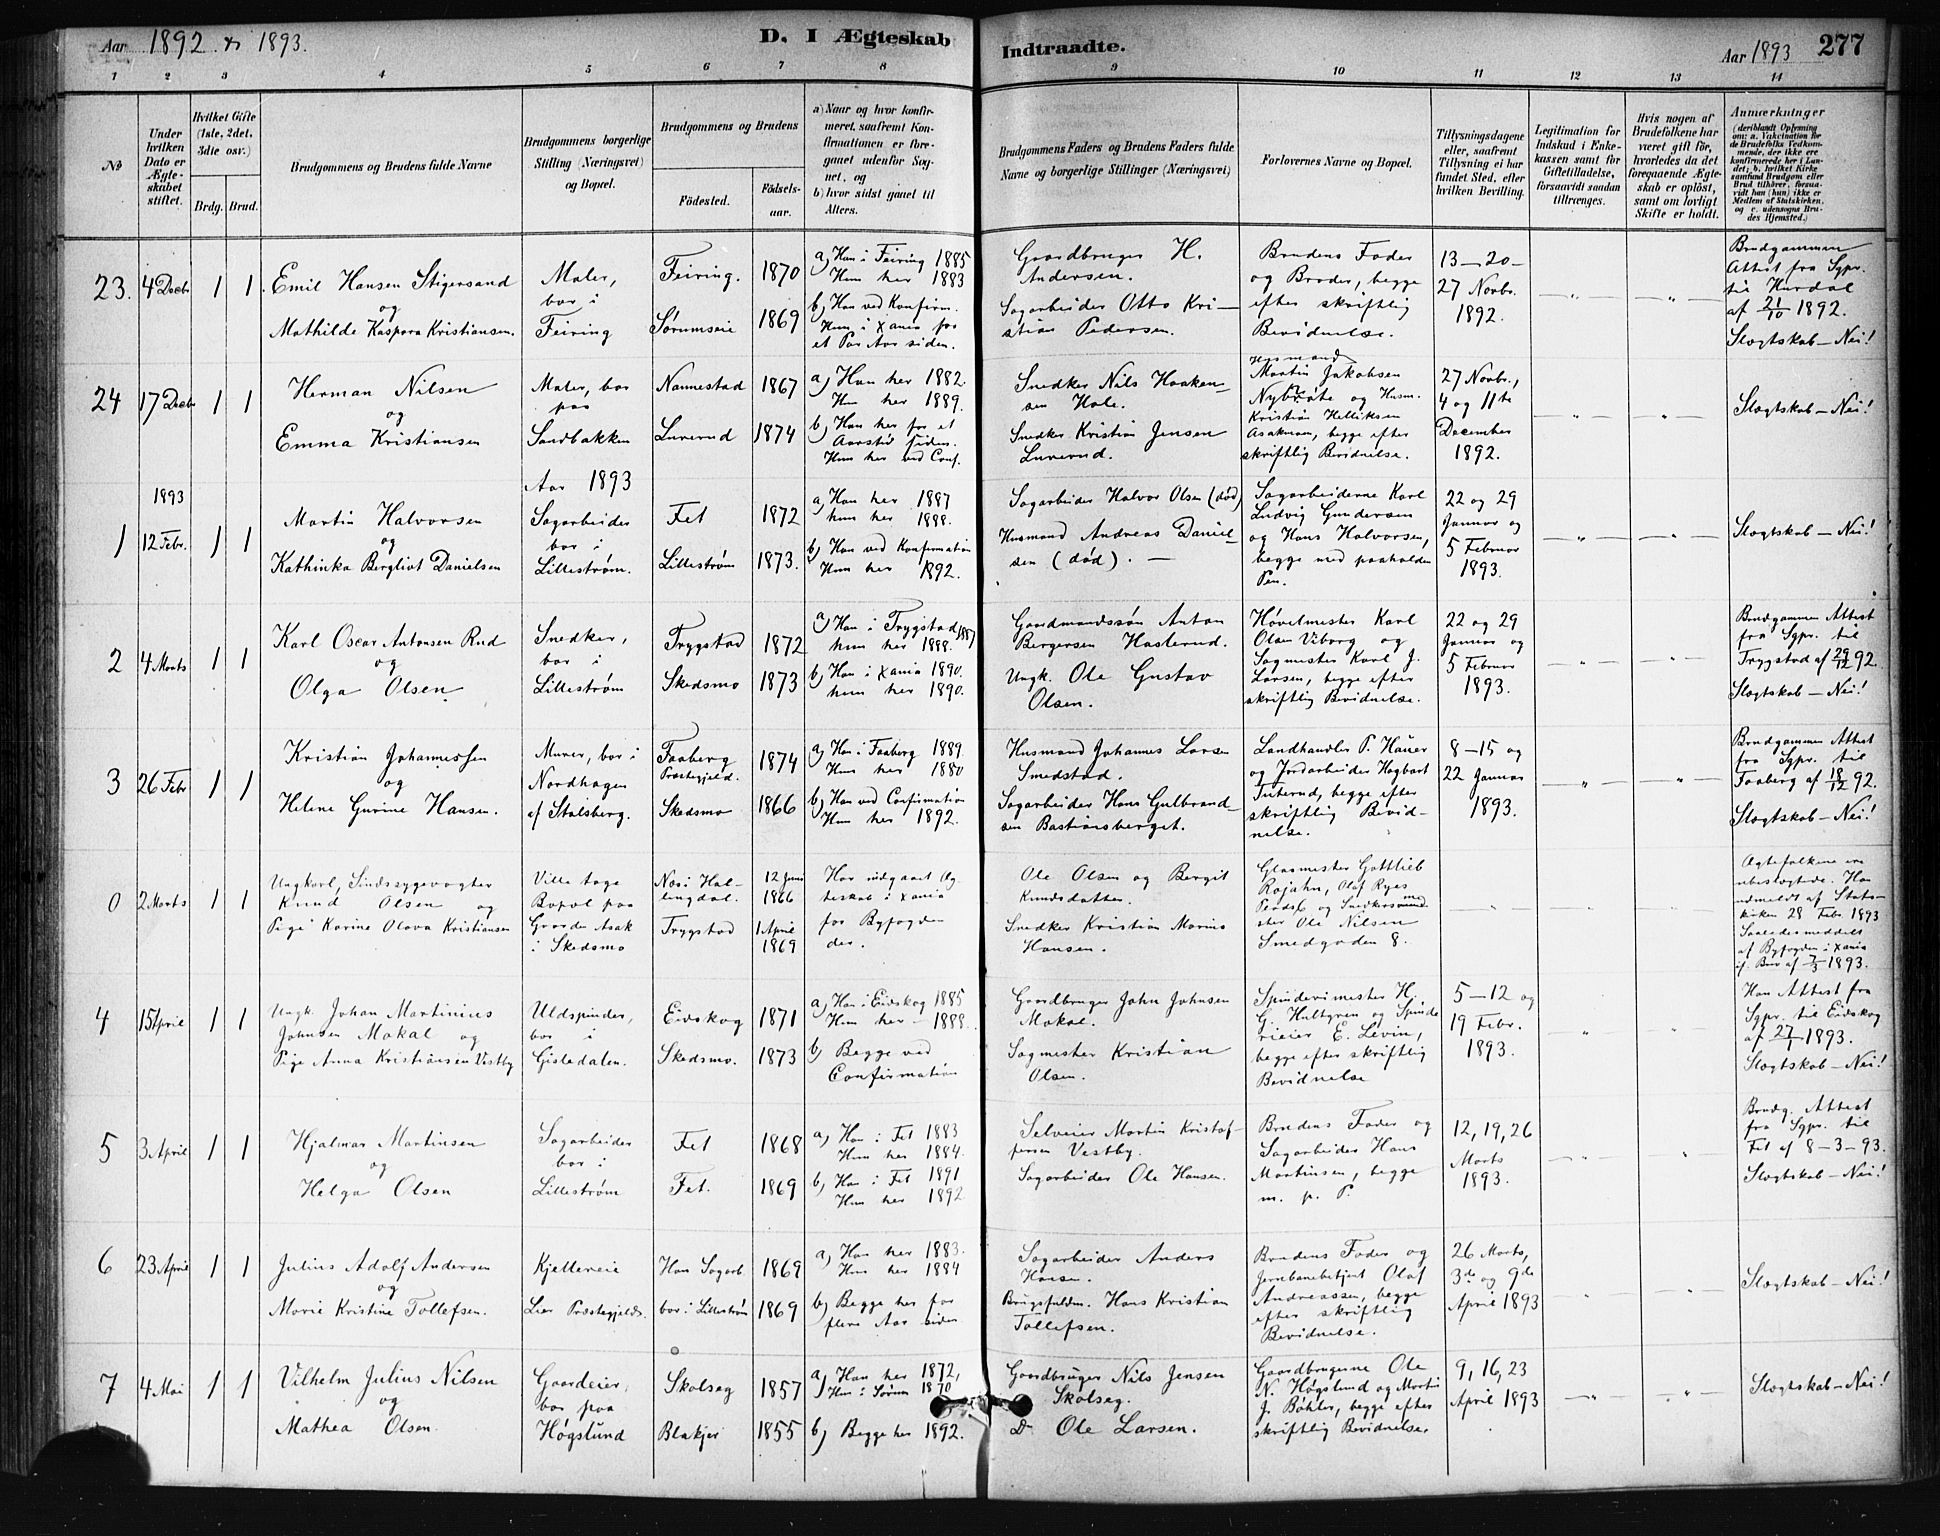 Aar 1892 & 1893.
D. I Ægteskab
Indtraadte.
Aar 1893
277
1 2 3 4 5 6 7 8 9 10 11 12 13 14
No
Under hvilken Dato er Ægteskabet stiftet.
Hvilket Gifte (1ste, 2det, 3die osv.)
Brdg. Brud.
Brudgommens og Brudens fulde Navne
Brudgommens borgerlige Stilling (Næringsvei) og Bopæl.
Brudgommens og Brudens
Fødested.
Fødselsaar.
a) Naar og hvor konfirmeret, saafremt Konfirmationen er foregaaet udenfor Sognet, og
b) hvor sidst gaaet til Alters.
Brudgommens Faders og Brudens Faders fulde Navne og borgerlige Stillinger (Næringsvei)
Forlovernes Navne og Bopæl.
Tillysningsdagene eller, saafremt Tillysning ei har fundet Sted, efter hvilken Bevilling.
Legitimation for Indskud i Enkekassen samt for Giftetilladelse, forsaavidt saadan tiltrænges.
Hvis nogen af Brudefolkene har været gift før, hvorledes da det foregaaende Ægteskab er opløst, samt om lovligt Skifte er holdt.
Anmærkninger
(deriblandt Oplysning om: a. Vakcination for de Brudefolks Vedkommende, der ikke ere konfirmerede her i Landet; b. hvilket Kirkesamfund Brudgom eller Brud tilhører, forsaavidt han (hun) ikke er Medlem af Statskirken, og c. udensogns Brudes Hjemsted.)
23. 4 Decbr 1 1
Emil Hansen Stigersand
og
Mathilde Kaspara Kristiansen.
Maler,
bor i
Feiring
Feiring. 1870
Sørumseie 1869
a) Han i Feiring 1885
Hun her 1883
b) Han ved Konfirm.
Hun i Xania for
et Par Aar siden.
Gaardbruger H.
Andersen.
Sagarbeider Otto Kri-
stian Pedersen.
Brudens Fader
og Broder, begge
efter skriftlig
Bevidnelse.
13–20–
27 Novbr.
1892.
Brudgommen
Attest fra Sgpr.
til Hurdal
af 21/10 1892.
Slægtskab – Nei!
24 17 Decbr 1 1
Herman Nilsen
og
Emma Kristiansen
Maler, bor
paa
Sandbakken
Nannestad 1867
Lurerud 1874
a) Han her 1882.
Hun her 1889.
b) Han her for et
Aarstid siden.
Hun her ved Conf.
Snedker Nils Haaken-
sen Hole.
Snedker Kristian Jensen
Lurerud.
Husmand
Martin Jakobsen
Nybråte og Husm.
Kristian Helliksen
Asakman, begge efter
skriftlig Bevidnelse.
27 Novbr.,
4 og 11te
December
1892.
Slægtskab – Nei!
Aar 1893
1893
1 12 Febr. 1 1
Martin Halvorsen
og
Kathinka Bergliot Danielsen
Sagarbeider
bor i
Lillestrøm.
Fet 1872
Lillestrøm 1873.
a) Han her 1887
hun her 1888.
b) Han ved Konfirmation
Hun her 1892.
Sagarbeider Halvor Olsen (død)
Husmand Andreas Daniel-
sen (død). —
Sagarbeiderne Karl
Ludvig Gundersen
og Hans Halvorsen,
begge med paaholden
Pen.
22 og 29
Januar og
5 Februar
1893.
Slægtskab – Nei!
2 4 Marts 1 1
Karl Oscar Antonsen Rud
og
Olga Olsen
Snedker,
bor i
Lillestrøm
Trygstad 1872
Skedsmo 1873
a) Han i Trygstad 1887
hun her 1888.
b) Han i Xania 1890.
hun her 1890.
Gaardmandssøn Anton
Bergersen Hasterud.
Ungk. Ole Gustav
Olsen.
Høvelmester Karl
Olsen Viborg og
Sagmester Karl J.
Larsen, begge efter
skriftlig Bevidnelse.
22 og 29
Januar og
5 Februar
1893.
Brudgommen Attest
fra Sgpr. til
Trygstad af 29/12 92.
Slægtskab – Nei!
3 26 Febr 1 1
Kristian Johannessen
og
Helene Gurine Hansen.
Murer, bor i
Nordhagen
af Stalsberg.
Faaberg
Præstegjeld. 1874
Skedsmo 1866
a) Han i Faaberg 1889.
Hun her 1880
b) Han ved Confirmation
Hun her 1892.
Husmand Johannes Larsen
Smedstad.
Sagarbeider Hans Gulbrand-
sen Bastiansberget.
Landhandler P. Hauer
og Jordarbeider Hagbart
Tuterud, begge efter
skriftlig Bevid-
nelse.
8–15 og
22 Januar
1893.
Brudgommen Attest
fra Sgpr. til
Faaberg af 18/12 92.
Slægtskab – Nei!
0 2 Marts 1 1
Ungkarl, Sindssygevogter
Knud Olsen og
Pige Karine Olava Kristiansen
Ville tage
Bopæl paa
Gaarden Asak
i Skedsmo
Næs i Hal-
lingdal. 12 Juni 1866
Trygstad 1 April 1869
Har indgaaet Æg-
teskab i Xania
for Byfogden
der.
Ole Olsen og Bergit
Knudsdatter.
Snedker Kristian Marius
Hansen.
Glasmester Gottlieb
Rojahn, Olaf Ryes
Plads 6 og Snedkersvend
Ole Nilsen
Smedgaden 8.
Ægtefolkene ere
ubeslægtede. Han
udmeldt af Stats-
kirken 28 Febr. 1893
Saaledes meddelt
af Byfogden i Xania
if. Brev af 7/3 1893.
4 15 April 1 1
Ungk. Johan Martinius
Johnsen Makal og
Pige Anna Kristiansen Vestby
Uldspinder,
bor i
Gisledalen.
Eidskog 1871
Skedsmo. 1873
a) Han i Eidskog 1885
Hun her – 1888.
b) Begge ved
Confirmation
Gaardbruger John Johnsen
Makal.
Sagmester Kristian
Olsen.
Spinderimester H.
G. Hultgren og Spinde
rieier E. Levin,
begge efter skriftlig
Bevidnelse
5–12 og
19 Febr.
1893.
Han Attest fra
Sgpr. til Eidskog
af 27/1 1893.
Slægtskab – Nei!
5 3 April 1 1
Hjalmar Martinsen
og
Helga Olsen
Sagarbeider
bor i
Lillestrøm
Fet 1868
Fet. 1869
a) Han i Fet 1883
Hun her 1884.
b) Han i Fet 1891
Hun her 1892
Selveier Martin Kristof-
fersen Vestby.
Sagarbeider Ole Hansen.
Brudens Fader og
Sagarbeider Hans
Martinsen, begge
m. p. P.
12, 19, 26
Marts
1893.
Brudg. Attest
fra Sgpr. til
Fet af 8–3–93.
Slægtskab – Nei!
6 23 April 1 1
Julius Adolf Andersen
og
Marie Kristine Tollefsen.
Kjellereie
Lier Præstegjeld.
Han Sagarb. 1869
bor i Lillestrøm 1869
a) Han her 1883.
Hun her 1884
b) Begge her for
flere Aar siden
Sagarbeider Anders
Hansen.
Brugsfuldm. Hans Kristian
Tollefsen.
Brudens Fader og
Jernbanebetjent Olaf
Andreassen, begge
efter skriftlig
Bevidnelse.
26 Marts,
3de og 9de
April 1893
Slægtskab – Nei!
7 4 Mai 1 1
Vilhelm Julius Nilsen
og
Mathea Olsen.
Gaardeier,
bor paa
Høgslund
Skolseg 1857
Blakjer 1855
a) Han her 1872,
Hun i Sørum 1870
b) Begge her 1892.
Gaardbruger Nils Jensen
Skolseg.
Do Ole Larsen.
Gaardbrugerne Ole
N. Høgslund og Martin
J. Bøhler, begge efter
skriftlig Bevidnelse.
9, 16, 23
April 1893
Slægtskab – Nei!